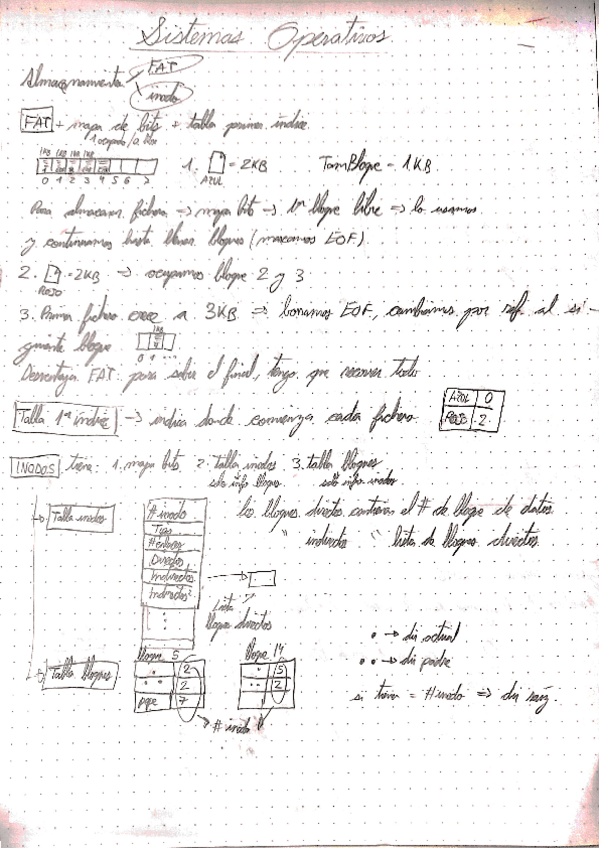 Sistemas Operativos
Almacenamiento
FAT
inodo
FAT + mapa de bits + tabla primer índice
1 ocupado / 0 libre
1KB 1KB 1KB 1KB
0 1 2 3 4 5 6 7
1. = 2KB TamBloque = 1KB
AZUL
Para almacenar fichero => mapa bit => 1er bloque libre => lo usamos
y continuamos hasta llenar bloques (marcamos EOF)
2. = 2KB => ocupamos bloque 2 y 3
ROJO
3. Primer fichero crece a 3KB => borramos EOF, cambiamos por ref. al si-
guiente bloque
0 1 ...
Desventaja FAT: para saber el final, tengo que recorrer todo
Tabla 1er índice -> indica donde comienza cada fichero
AZUL 0
ROJO 2
INODOS tiene: 1. mapa bits 2. tabla inodos 3. tabla bloques
solo info bloques solo info inodos
Tabla inodos
# inodo
Tipo
# enlaces
Directos
Indirectos
Indirectos²
Lista
bloques directos
los bloques directos contienen el # de bloque de datos
" indirectos " lista de bloques directos
Tabla bloques
Bloque 5
. 2
.. 2
pepe 7
Bloque 14
. 5
.. 2
# inodo
. -> dir actual
.. -> dir padre
si tienen = # inodo => dir raíz.